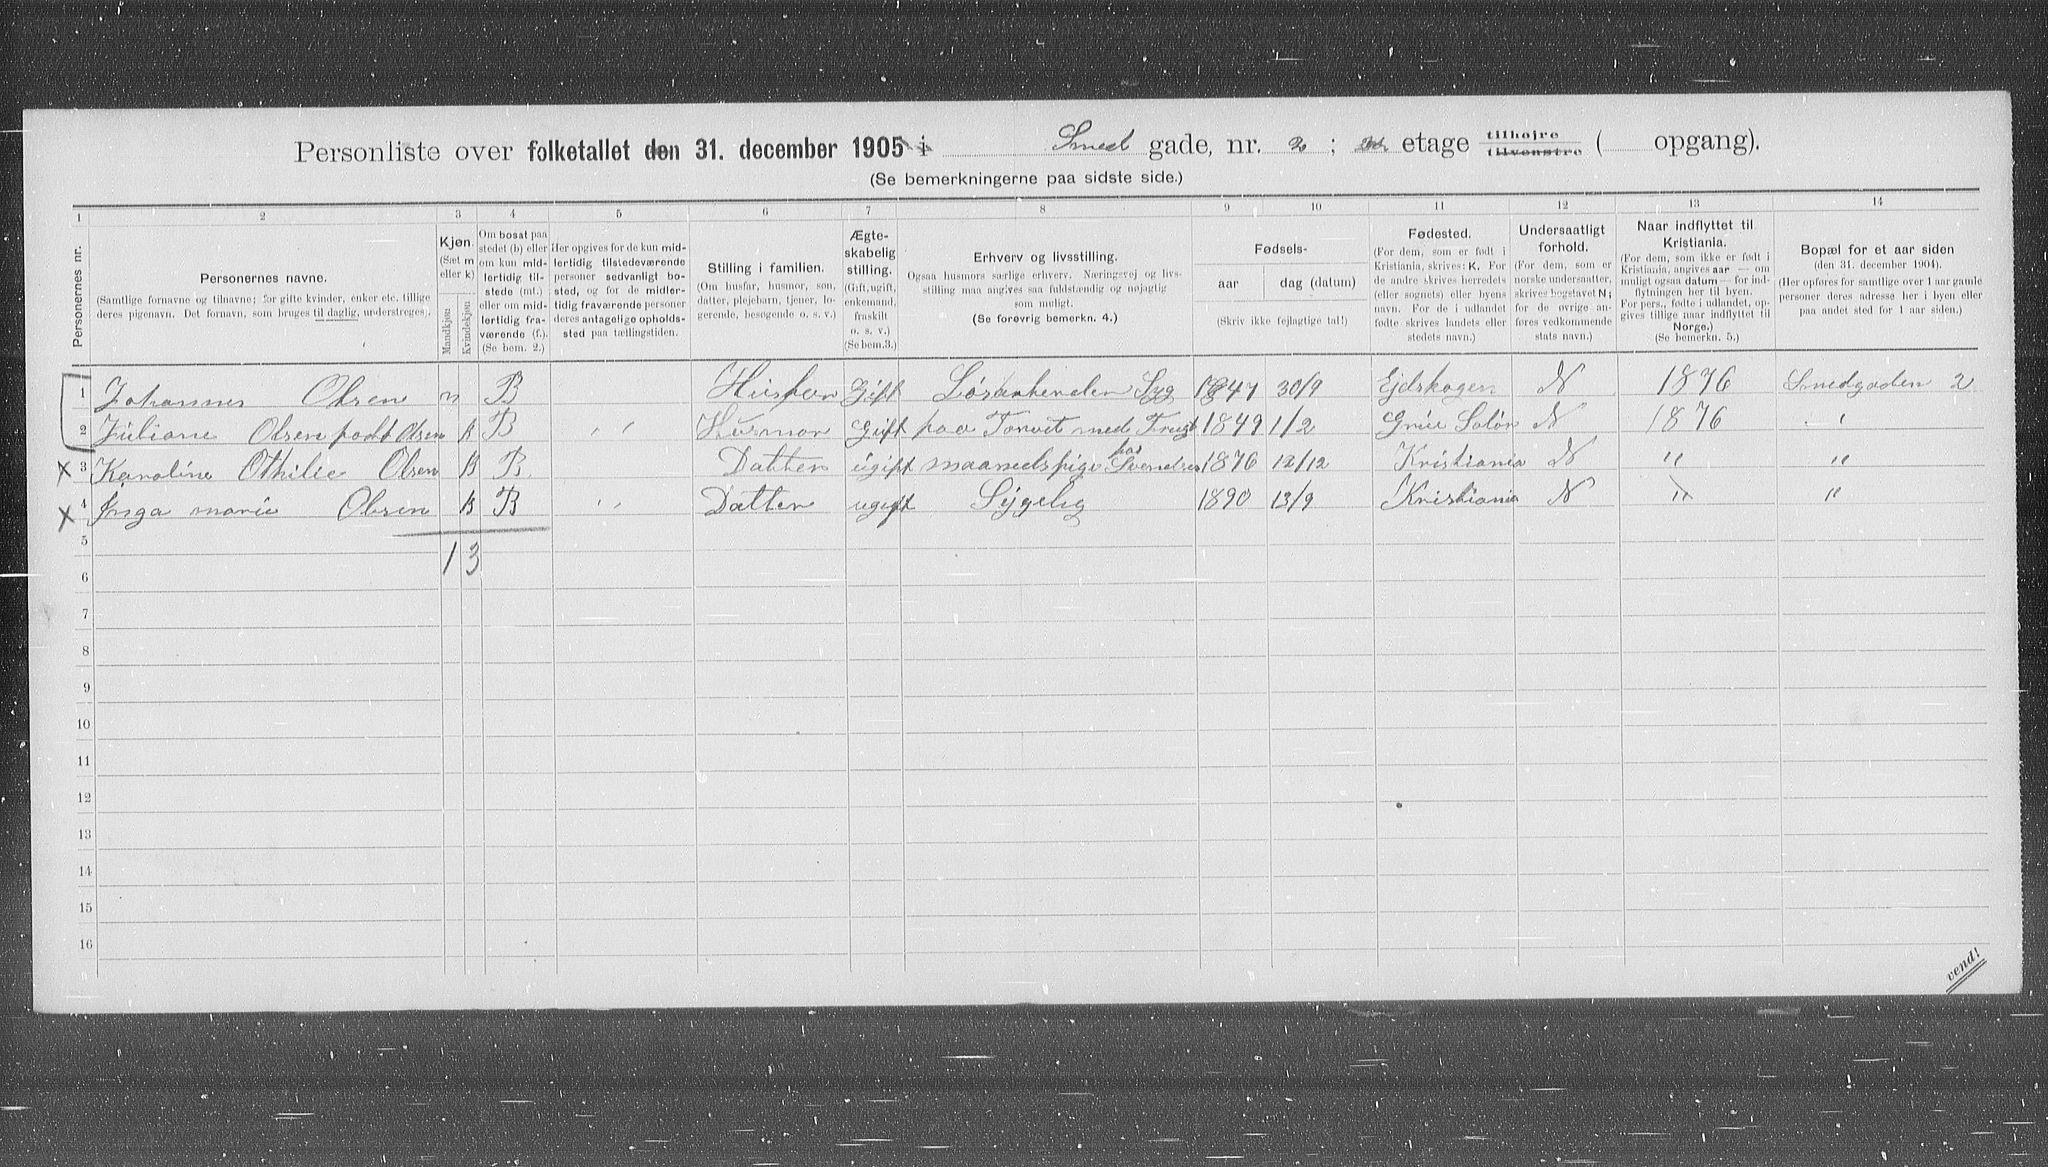 Personliste over folketallet den 31. december 1905 i Smed gade, nr. 2; etage tilhøjre tilvenstre ( opgang).
(Se bemerkningerne paa sidste side.)
1 2 3 4 5 6 7 8 9 10 11 12 13 14
Personernes nr.
Personernes navne.
(Samtlige fornavne og tilnavne; for gifte kvinder, enker etc. tillige
deres pigenavn. Det fornavn, som bruges til daglig, understreges).
Kjøn.
(Sæt m
eller k)
Mandkjøn
Kvindekjøn
Om bosat paa
stedet (b) eller
om kun mid-
lertidig til-
stede (mt.)
eller om mid-
lertidig fra-
værende (f.).
(Se bem. 2.)
Her opgives for de kun mid-
lertidig tilstedeværende
personer sedvanligt bo-
sted, og for de midler-
tidig fraværende personer
deres antagelige opholds-
sted paa tællingstiden.
Stilling i familien.
(Om husfar, husmor, søn,
datter, plejebarn, tjener, lo-
gerende, besøgende o. s. v.)
Ægte-
skabelig
stilling.
(Gift, ugift,
enkemand,
fraskilt
o. s. v.)
(Se bem. 3.)
Erhverv og livsstilling.
Ogsaa husmors særlige erhverv. Næringsvej og livs-
stilling maa angives saa fuldstændig og nøjagtig
som muligt.
(Se forøvrig bemerkn. 4.)
Fødsels-
aar
dag (datum)
(Skriv ikke fejlagtige tal!)
Fødested.
(For dem, som er født i
Kristiania, skrives: K. For
de andre skrives herredets
(eller sognets) eller byens
navn. For de i udlandet
fødte skrives landets eller
stedets navn.)
Undersaatligt
forhold.
(For dem, som er
norske undersaatter,
skrives bogstavet N;
for de øvrige an-
føres vedkommende
stats navn.)
Naar indflyttet til
Kristiania.
(For dem, som ikke er født i
Kristiania, angives aar — om
muligt ogsaa datum — for ind-
flytningen her til byen.
For pers., fødte i udlandet, op-
gives tillige naar indflyttet til
Norge.)
(Se bemerkn. 5.)
Bopæl for et aar siden
(den 31. december 1904).
(Her opføres for samtlige over 1 aar gamle
personer deres adresse her i byen eller
paa andet sted for 1 aar siden.)
1 Johannes Olsen m B Husfar Gift Syg 1847 30/9 Ejdskogen N 1876 Smedgaden 2
2 Juliane Olsen født Olsen k B " Husmor Gift paa Torvet med Frugt 1849 1/2 Grue Solør N 1876 "
x 3 Karoline Othilie Olsen k B Datter ugift maanedspige hos Svendsen 1876 12/12 Kristiania N " "
x 4 Inga marie Olsen k B " Datter ugift Sygelig 1890 13/9 Kristiania N " "
5
1 3
6
7
8
9
10
11
12
13
14
15
16
vend!